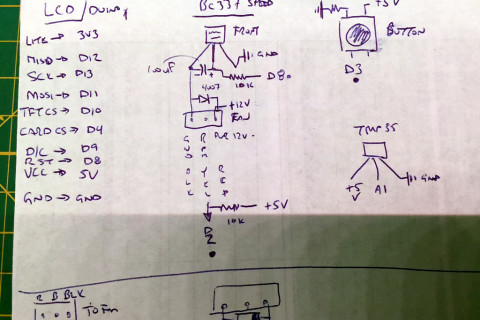 LCD/Duino
LITE → 3V3
MISO → D12
SCK → D13
MOSI → D11
TFTCS → D10
CARDCS → D4
D/C → D9
RST → D8
VCC → 5V
GND → GND
BC337 SPEED
FRONT
GND
100uF
10K
D8
4007
+12V
FAN
PWR 12V
+5V
10K
D2
+5V
BUTTON
D3
TMP35
+5V
A1
GND
R B BLK
TO FAN